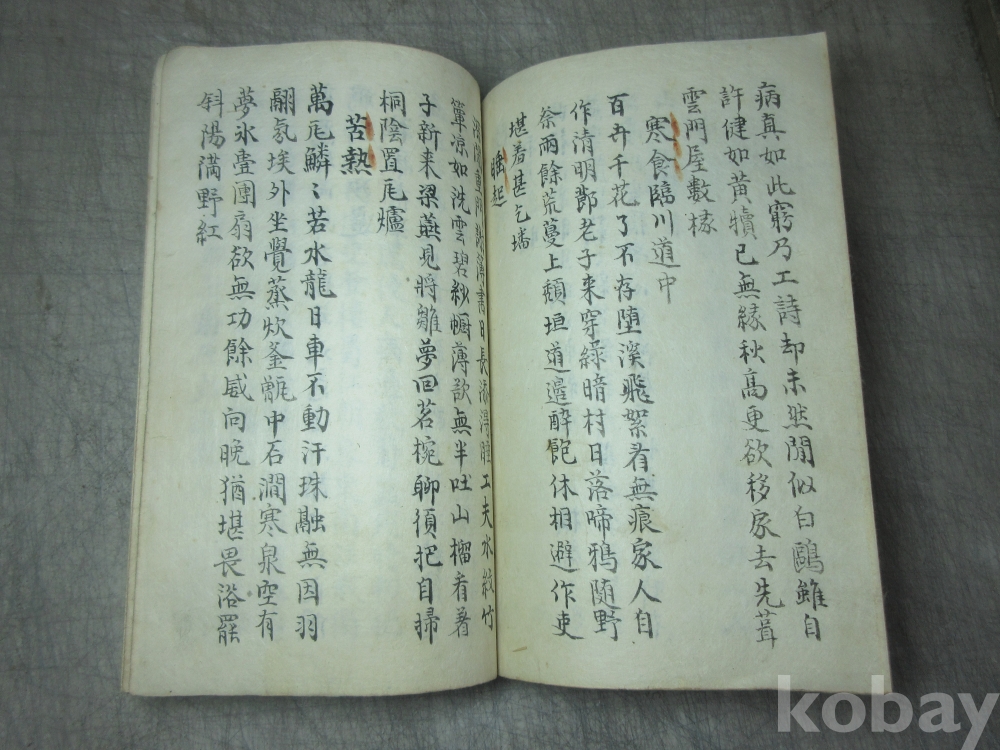 病真如此窮乃工詩却未然閒似白鷗雖自
許健如黃犢已無緣秋高更欲移家去先葺
雲門屋數椽
寒食臨川道中
百卉千花了不存墮溪飛絮看無痕家人自
作清明節老子来穿綠暗村日落啼鴉隨野
祭雨餘荒蔓上頹垣道邊醉飽休相避作吏
堪羞甚乞墦
睡起
日長添得睡工夫水紋竹
簟凉如洗雲碧紗㡡薄欲無半吐山榴看着
子新来梁燕見將雛夢回茗椀聊須把自掃
桐陰置瓦爐
苦熱
萬瓦鱗〻若水龍日車不動汗珠融無因羽
翮氛埃外坐覺蒸炊釜甑中石澗寒泉空有
夢氷壺團扇欲無功餘威向晚猶堪畏浴罷
斜陽滿野紅
kobay